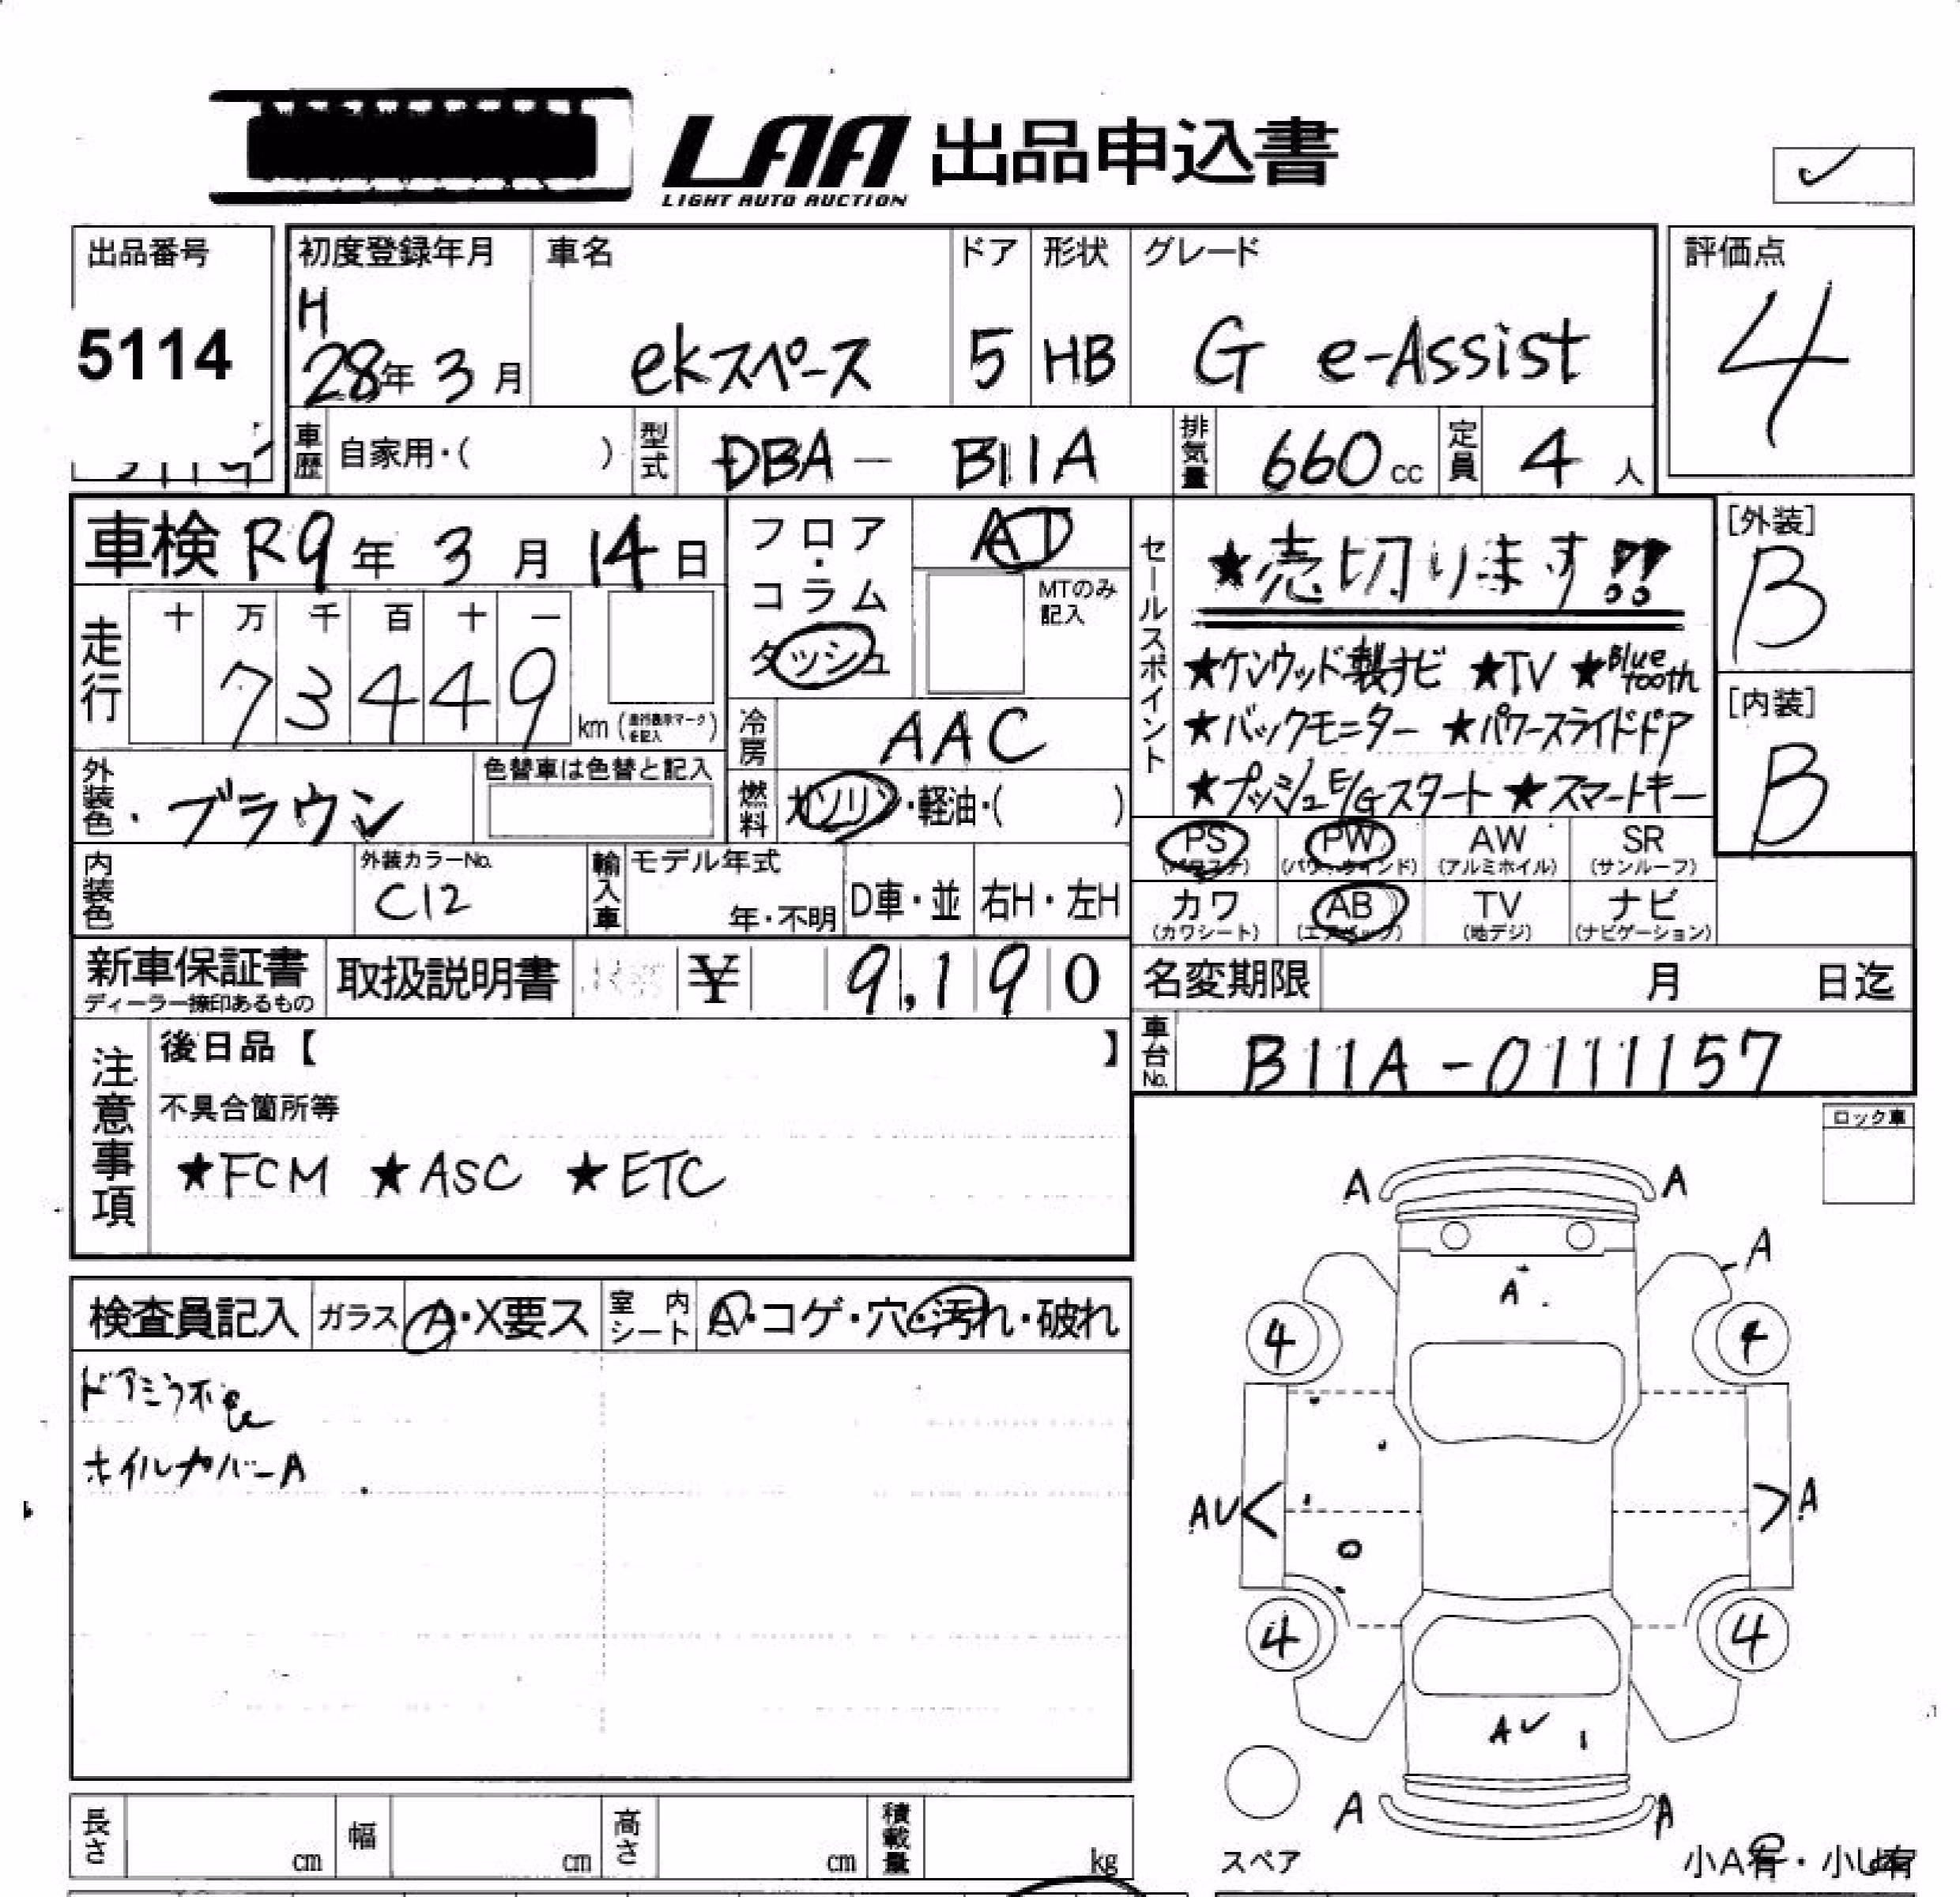 LAA 出品申込書
LIGHT AUTO AUCTION
出品番号
5114
初度登録年月
H
28年 3月
車名
ekスペース
ドア
5
形状
HB
グレード
G e-Assist
評価点
4
車歴 自家用・( )
型式 DBA - B11A
排気量 660 cc
定員 4 人
車検 R9年 3月 14日
走行
十 万 千 百 十 一
7 3 4 4 9
km (走行表示マークを記入)
フロア・コラム
ダッシュ
AT
MTのみ記入
冷房 AAC
燃料 ガソリン・軽油・( )
セールスポイント
★売切ります!!
★ケンウッド製ナビ ★TV ★Bluetooth
★バックモニター ★パワースライドドア
★プッシュE/Gスタート ★スマートキー
[外装]
B
[内装]
B
外装色・ ブラウン
色替車は色替と記入
内装色
外装カラーNo.
C12
輸入車
モデル年式
年・不明
D車・並
右H・左H
PS (パワステ)
PW (パワーウインド)
AW (アルミホイル)
SR (サンルーフ)
カワ (カワシート)
AB (エアバッグ)
TV (地デジ)
ナビ (ナビゲーション)
新車保証書
ディーラー捺印あるもの
取扱説明書
¥ 9,190
名変期限 月 日迄
車台No. B11A-0111157
注意事項
後日品【 】
不具合箇所等
★FCM ★ASC ★ETC
ロック車
検査員記入
ガラス A・X要ス
室内シート A・コゲ・穴・汚れ・破れ
ホイルカバーA
A A
A
A
4 4
AU A
4 4
AU
A A
スペア
小A有・小U有
長さ cm
幅 cm
高さ cm
積載量 kg